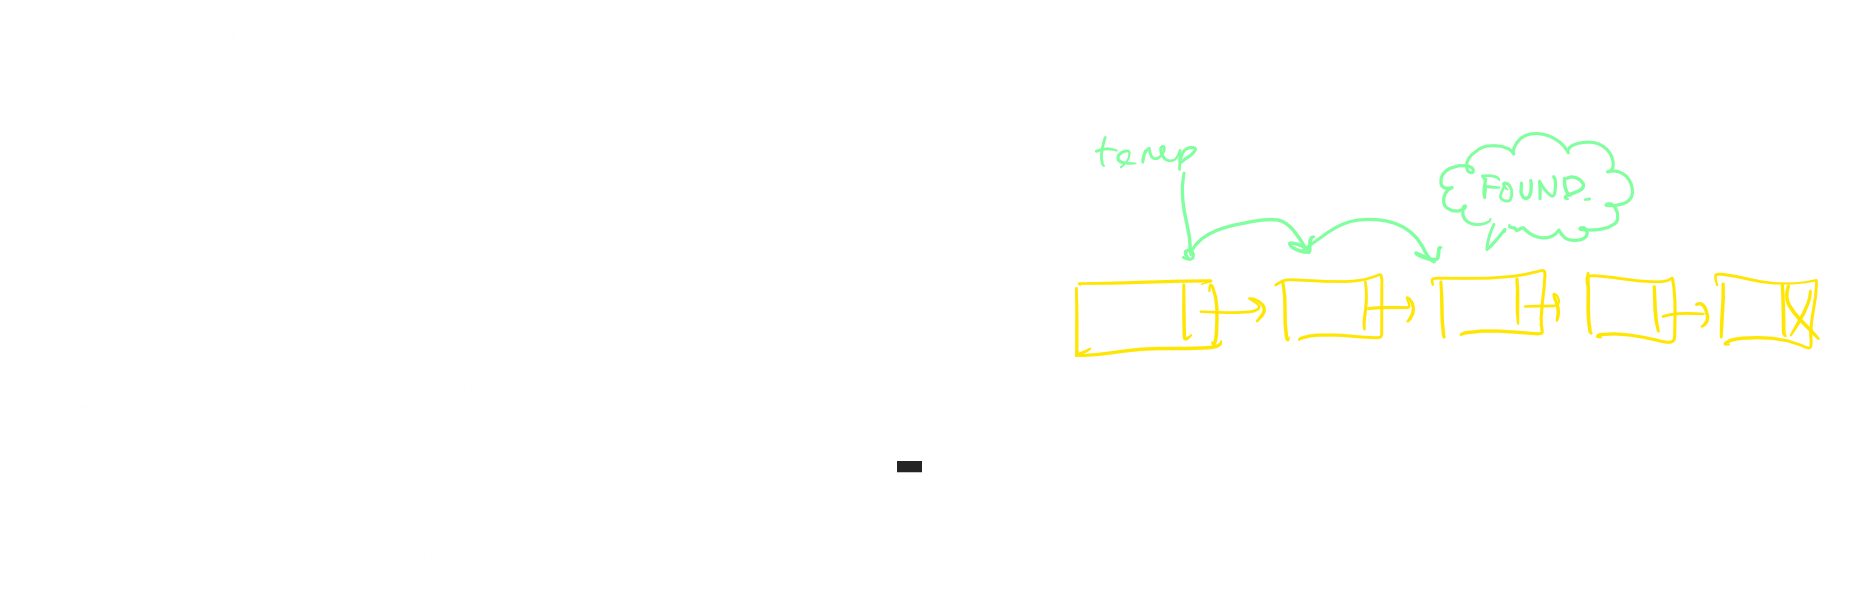 temp
FOUND.